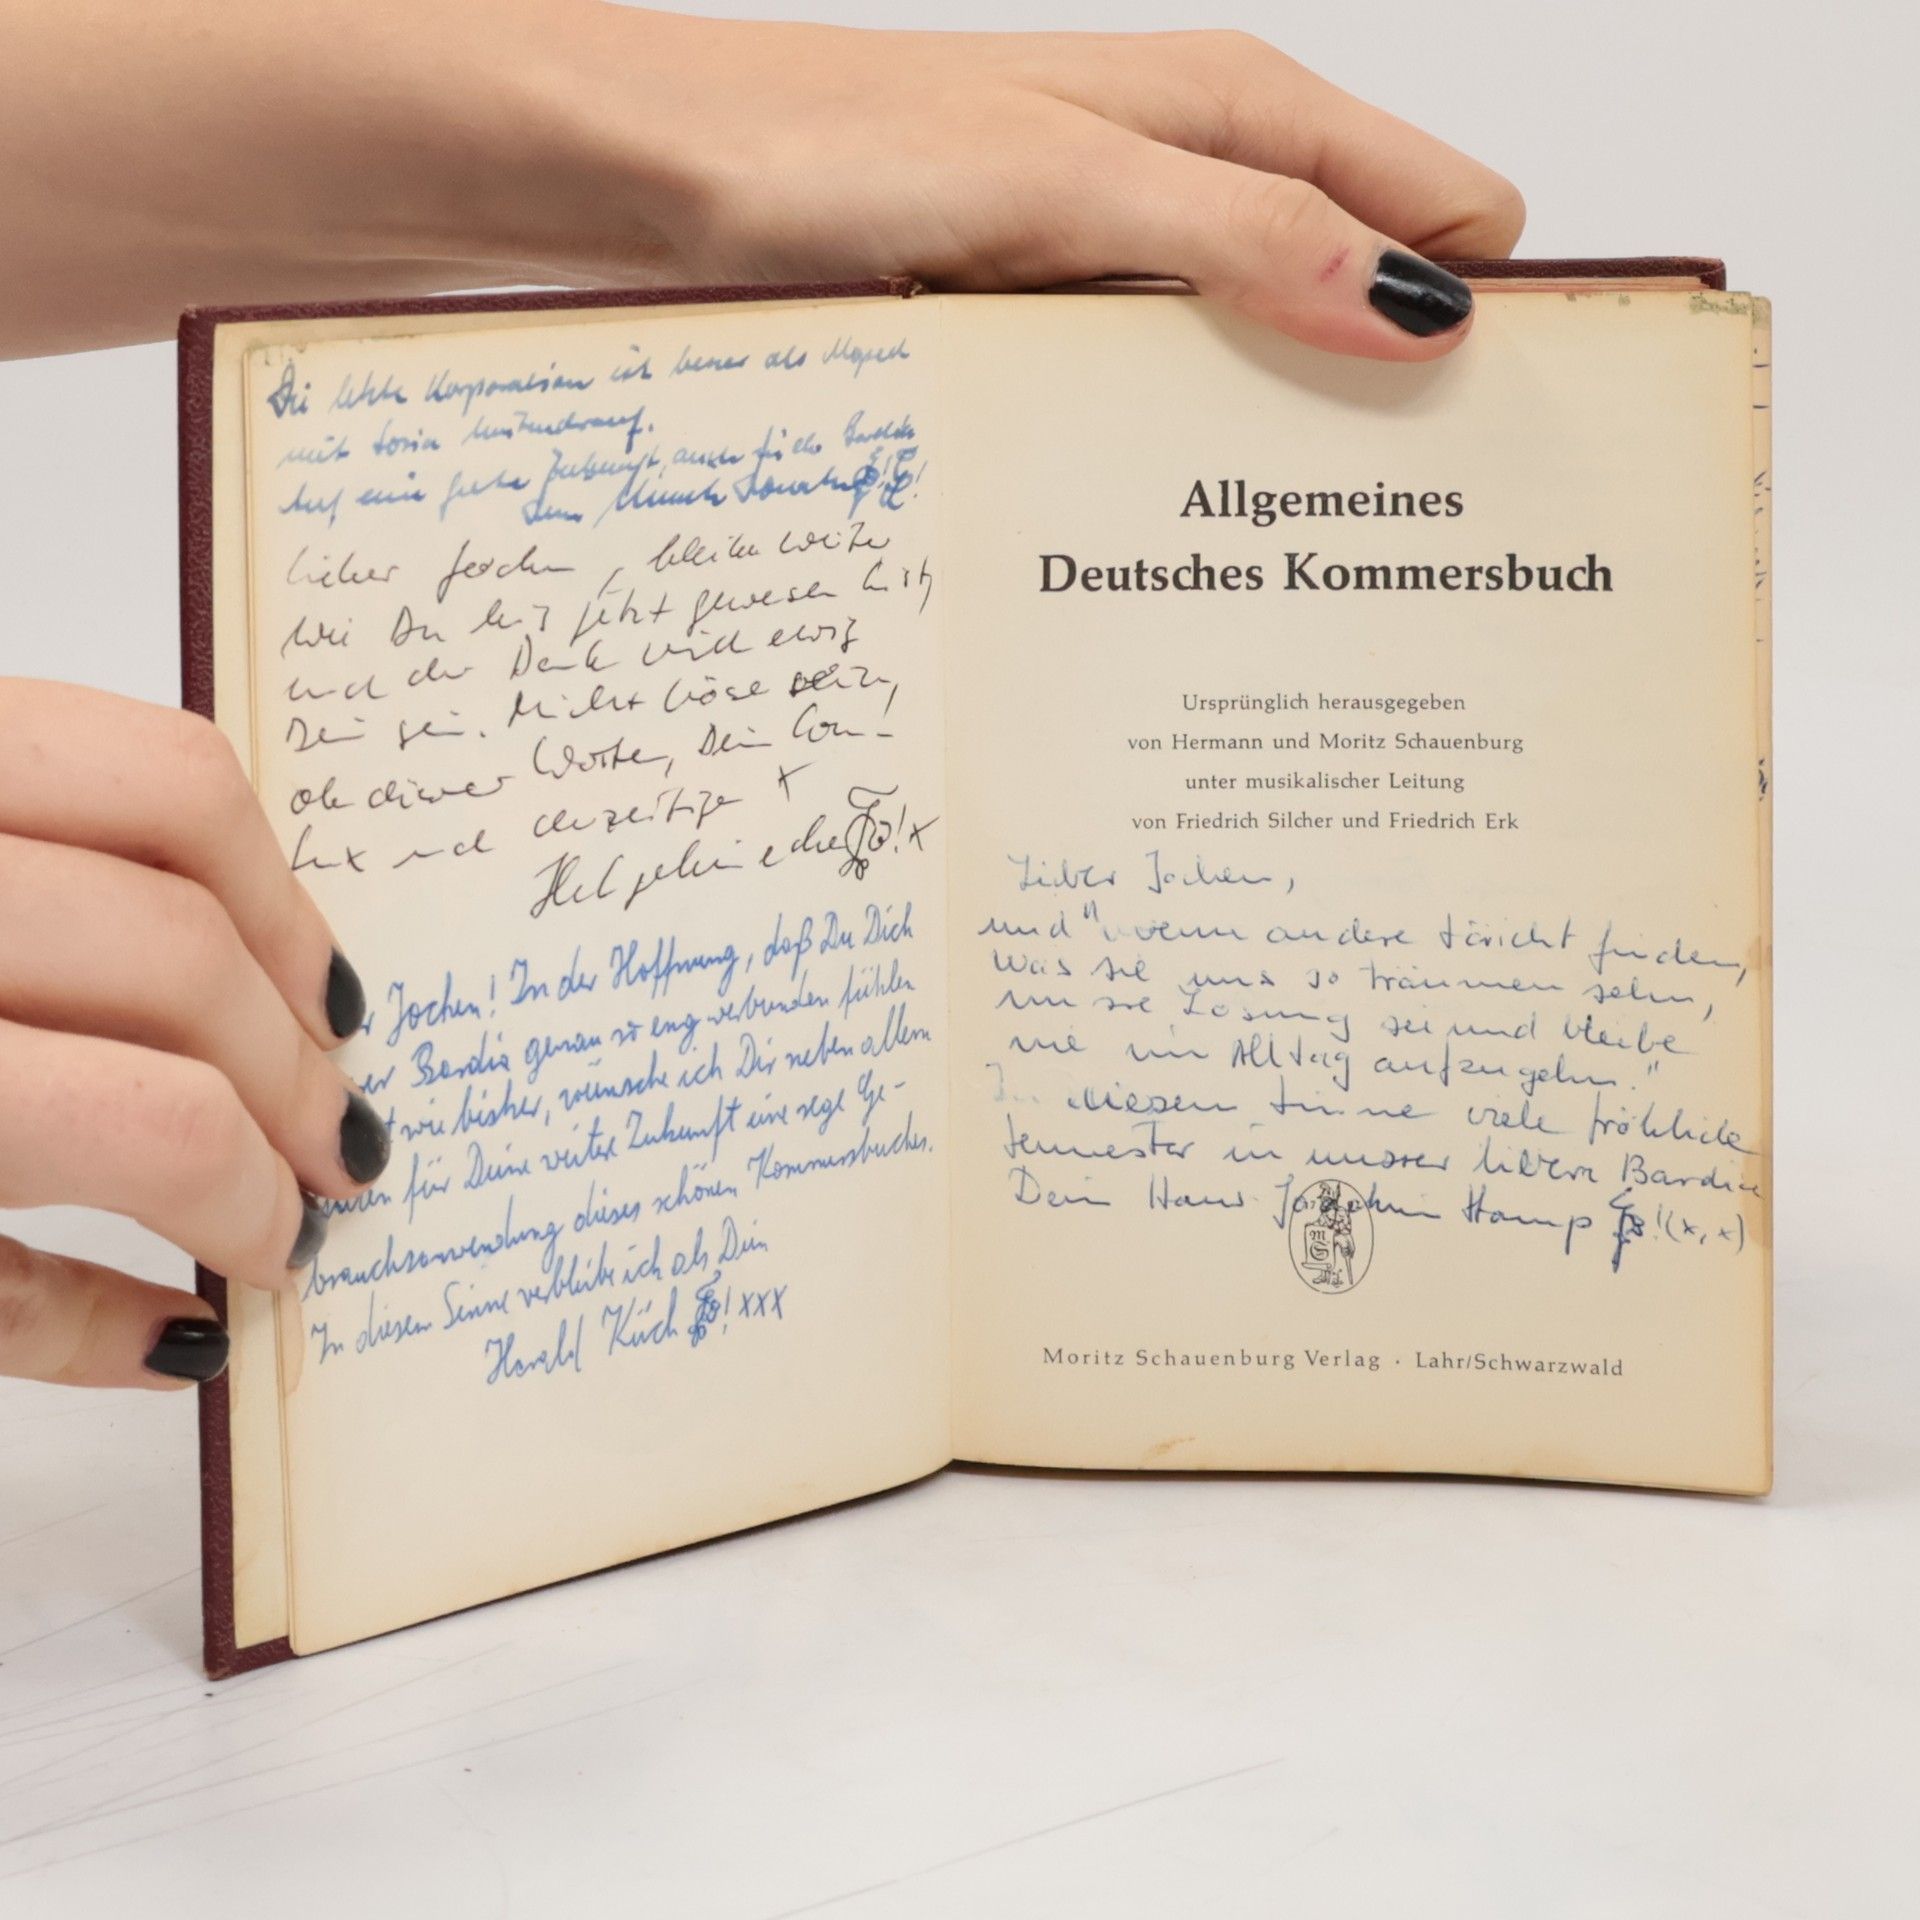 Die letzte Korporation ist besser als Moped
mit
Auf eine gute Zukunft, auch für die Bardia
Dein
Lieber Jochen, bleibe weiter
wie Du bis jetzt gewesen bist,
und der Dank wird ewig
Dein sein. Nicht böse sein,
ob dieser Worte, Dein Con-
fux und derzeitiger x
x
Jochen! In der Hoffnung, daß Du Dich
Bardia genau so eng verbunden fühlen
wie bisher, wünsche ich Dir neben allem
für Deine weitere Zukunft eine rege Ge-
brauchsanwendung dieses schönen Kommersbuches.
In diesem Sinne verbleibe ich als Dein
Harald Küch ! xxx
Allgemeines
Deutsches Kommersbuch
Ursprünglich herausgegeben
von Hermann und Moritz Schauenburg
unter musikalischer Leitung
von Friedrich Silcher und Friedrich Erk
Lieber Jochen,
und "wenn andere töricht finden,
was sie uns so träumen sehn,
unsre Losung sei und bleibe
nie im Alltag aufzugehn."
In diesem Sinne viele fröhliche
Semester in unserer lieben Bardia
Dein Hans Joachim Hamp ! (x, x)
MS
Moritz Schauenburg Verlag · Lahr/Schwarzwald